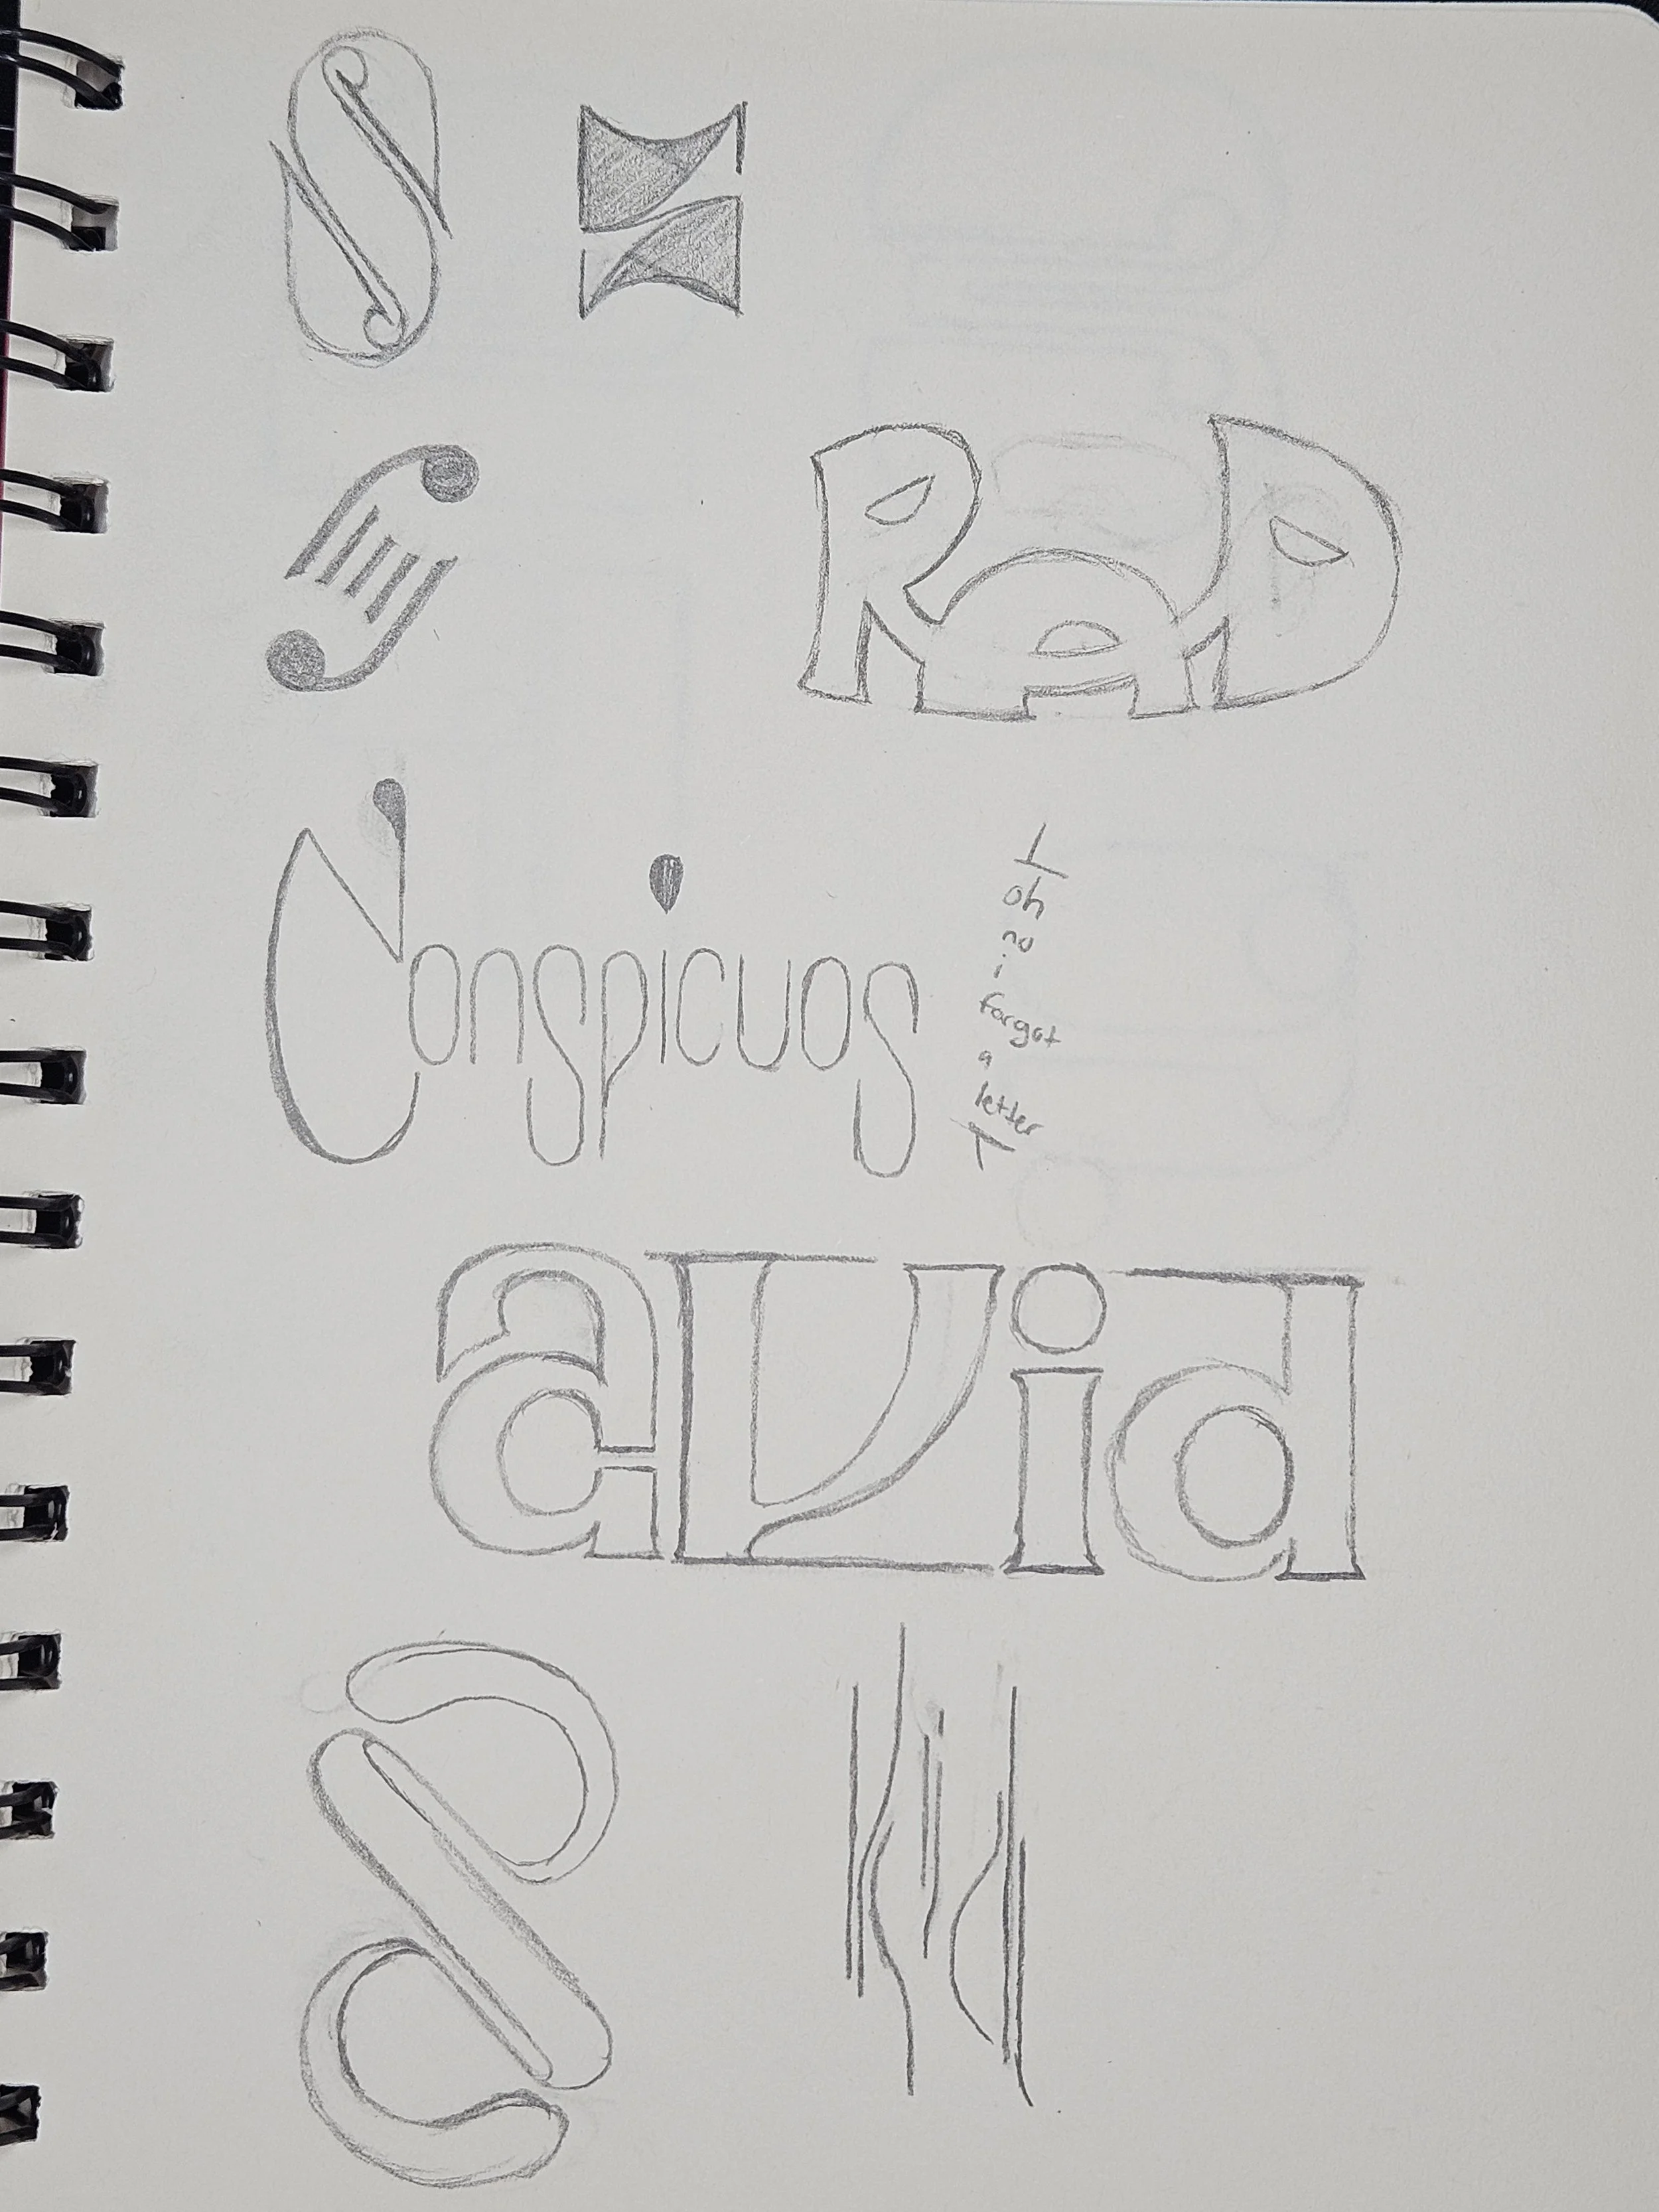 S
S
S
RAD
Conspicuos
oh
no
i
forgot
a
letter
avid
S
Kid